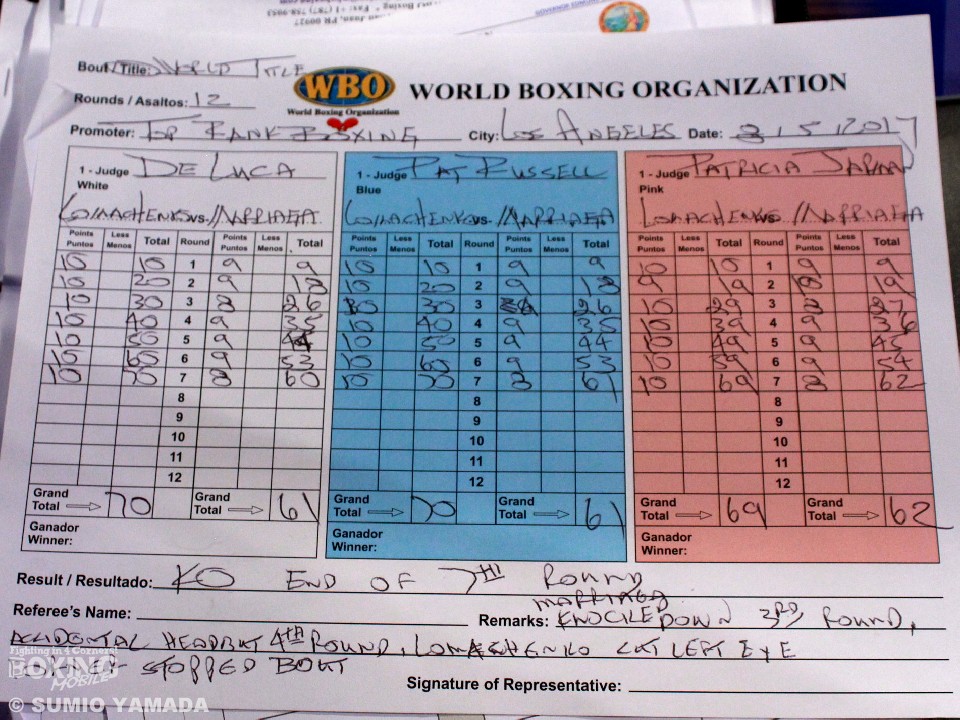 Bout/Title: World Title
Rounds / Asaltos: 12
WBO
World Boxing Organization
WORLD BOXING ORGANIZATION
Promoter: Top Rank Boxing City: Los Angeles Date: 8/5/2017
1 - Judge De Luca
White
1 - Judge Pat Russell
Blue
1 - Judge Patricia
Pink
Lomachenko vs. Marriaga
Lomachenko vs. Marriaga
Lomachenko vs. Marriaga
Points Puntos Less Menos Total Round Points Puntos Less Menos Total
Points Puntos Less Menos Total Round Points Puntos Less Menos Total
Points Puntos Less Menos Total Round Points Puntos Less Menos Total
10 10 1 9 9 10 10 1 9 9 10 10 1 9 9
10 20 2 9 18 10 20 2 9 18 9 19 2 10 19
10 30 3 8 26 10 30 3 26 10 29 3 8 27
10 40 4 9 35 10 40 4 9 35 10 39 4 9 36
10 50 5 9 44 10 50 5 9 44 10 49 5 9 45
10 60 6 9 53 10 60 6 9 53 10 59 6 9 54
10 70 7 8 60 10 70 7 8 61 10 69 7 8 62
8 8 8
9 9 9
10 10 10
11 11 11
12 12 12
Grand Total 70 Grand Total 61 Grand Total 70 Grand Total 61 Grand Total 69 Grand Total 62
Ganador Winner: Ganador Winner: Ganador Winner:
Result / Resultado: KO END OF 7TH Round
Marriaga
Referee's Name: Remarks: KNOCKED DOWN 3RD ROUND,
ACCIDENTAL HEADBUT 4TH ROUND, LOMACHENKO CUT LEFT EYE
STOPPED BOUT
Signature of Representative:
Fighting in 4 Corners!
BOXING
MOBILE
© SUMIO YAMADA